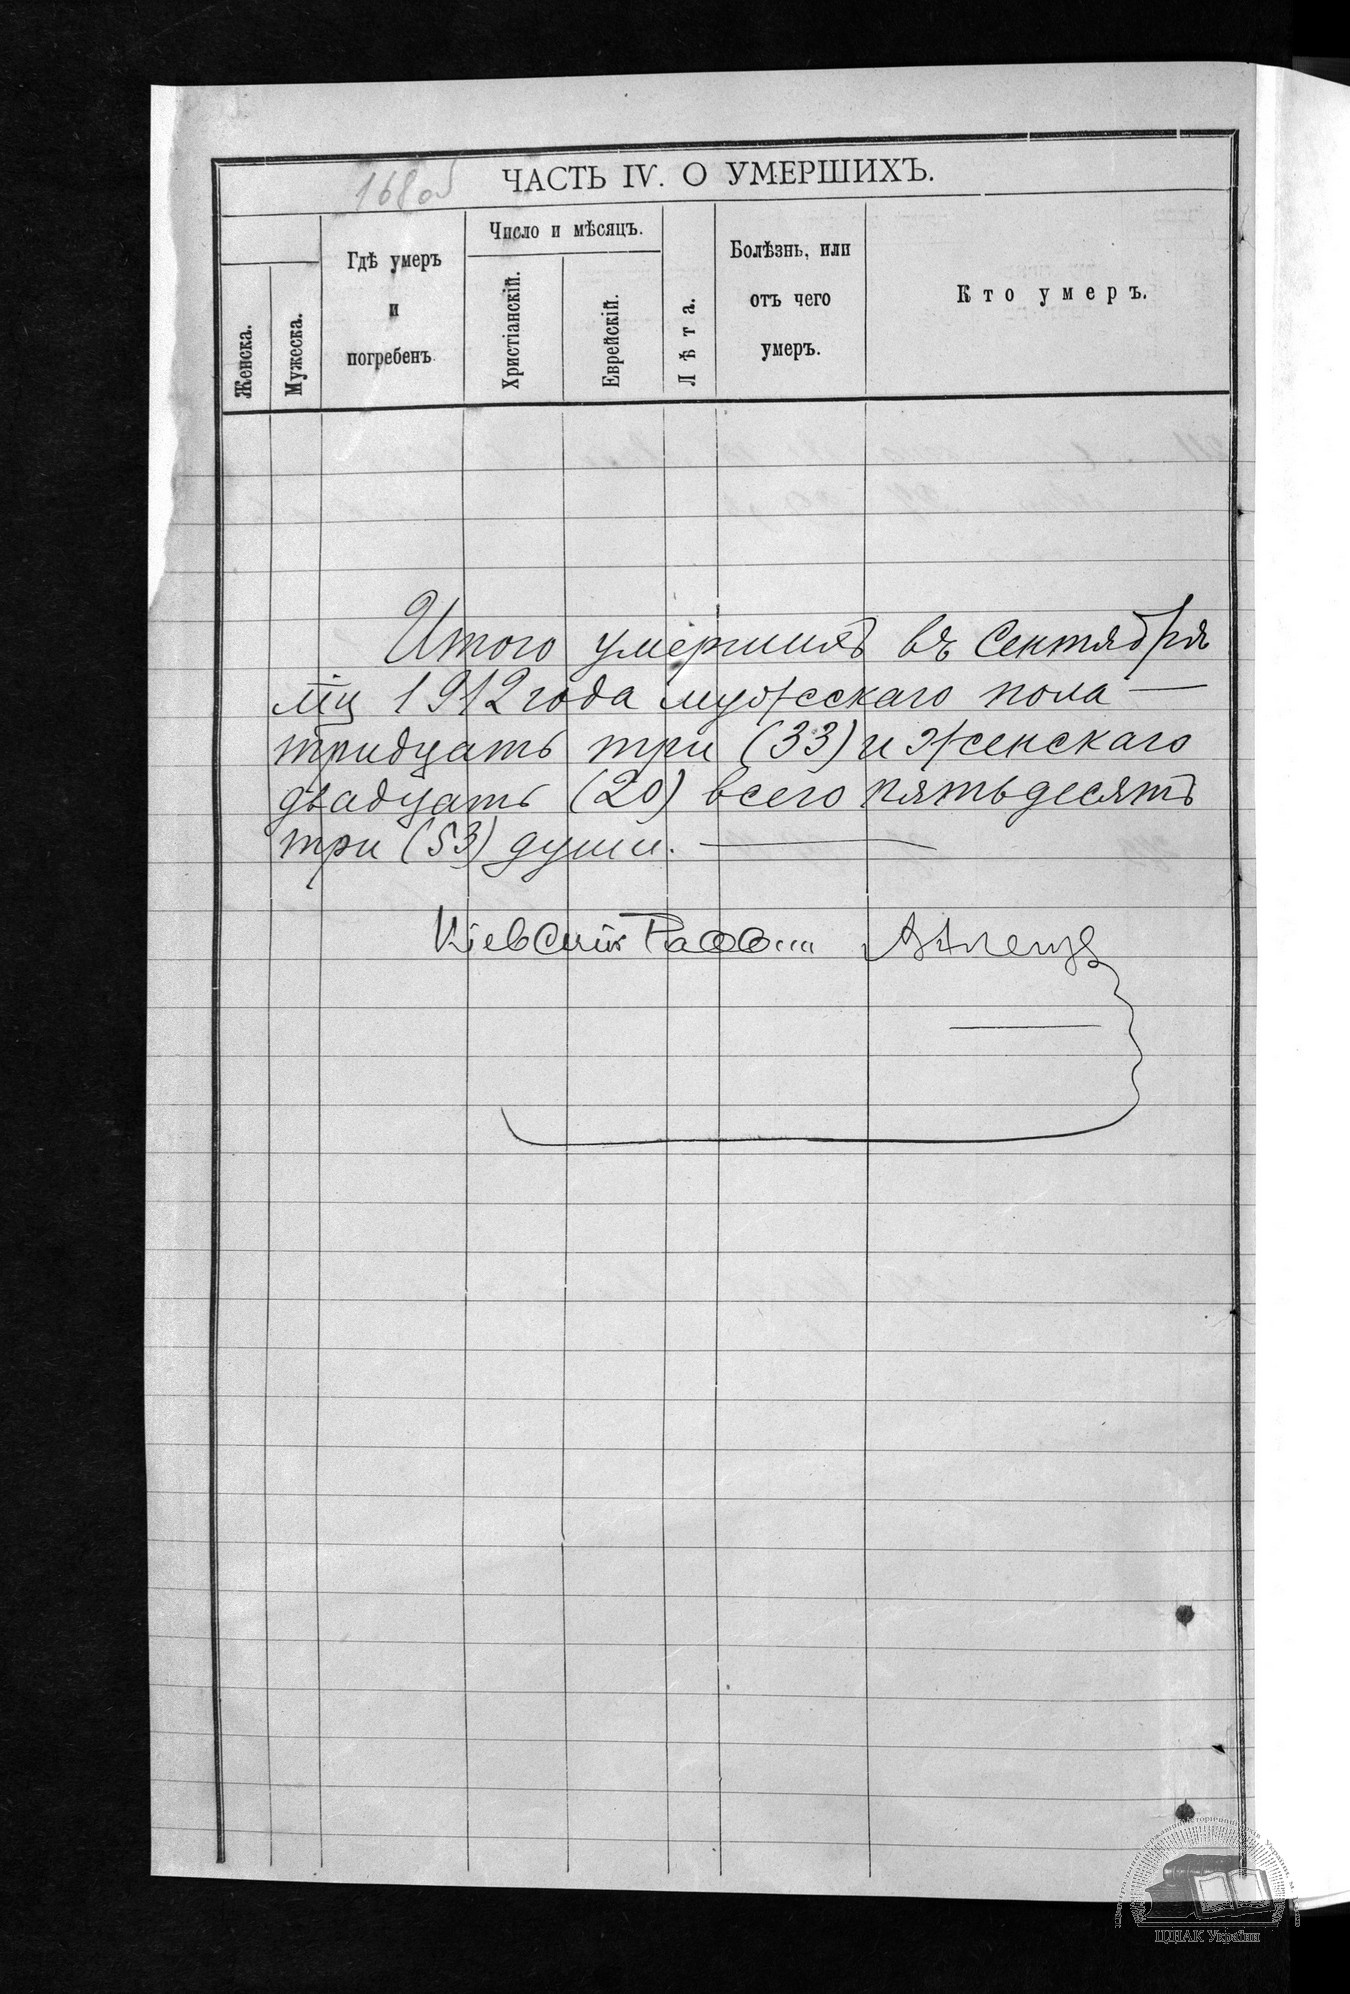 168об
ЧАСТЬ IV. О УМЕРШИХЪ.
Женска.
Мужеска.
Гдѣ умеръ
и
погребенъ
Число и мѣсяцъ.
Христіанскій.
Еврейскій.
Лѣта.
Болѣзнь, или
отъ чего
умеръ.
Кто умеръ.
Итого умершихъ въ Сентябрѣ
мцѣ 1912 года мужескаго пола —
тридцать три (33) и женскаго
двадцать (20) всего пятьдесятъ
три (53) души. —
Кіевскій Раввинъ
ЦДІАК України